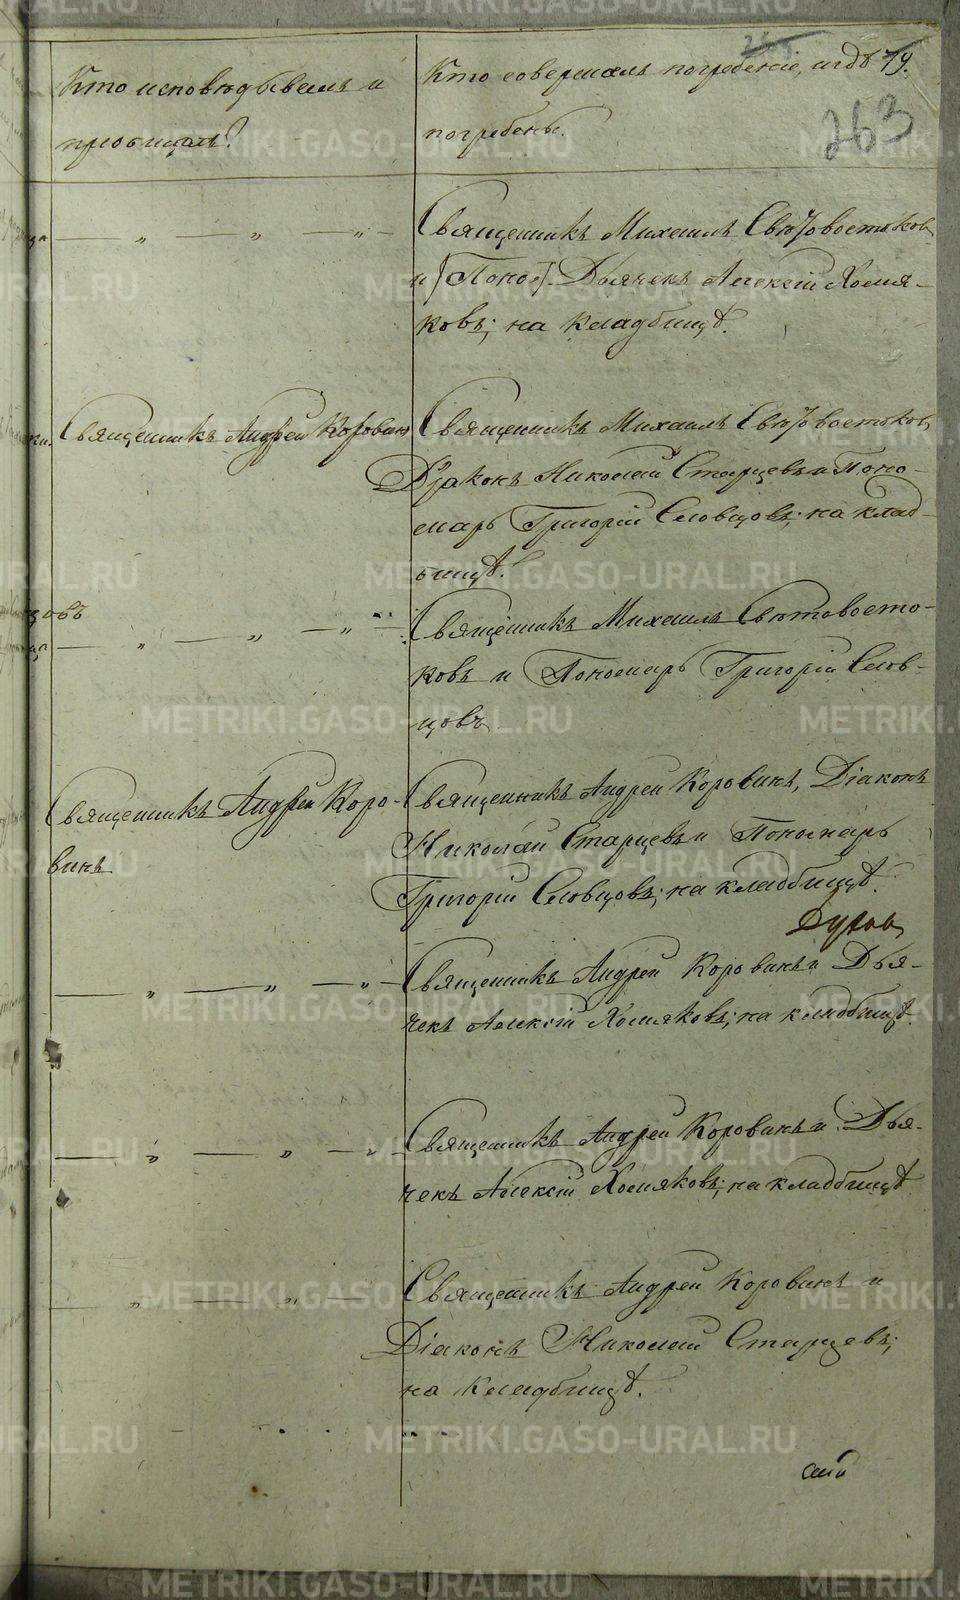 Кто исповѣдывалъ и
пріобщалъ?
Кто совершалъ погребеніе, и гдѣ 79.
погребены.
263
Священникъ Михаилъ Свѣтовостоковъ
и [Поно]. Дьячекъ Алексій Хомя-
ковъ; на кладбищѣ.
Священникъ Андрей Коровинъ
Священникъ Михаилъ Свѣтовостоковъ,
Діаконъ Николай Старцевъ и Поно-
марь Григорій Словцовъ; на клад-
бищѣ.
зовъ
Священникъ Михаилъ Свѣтовосто-
ковъ и Пономарь Григорій Слов-
цовъ
Священникъ Андрей Коро-
винъ
Священникъ Андрей Коровинъ, Діаконъ
Николай Старцевъ и Пономарь
Григорій Словцовъ; на кладбищѣ.
Священникъ Андрей Коровинъ и Дья-
чекъ Алексій Хомяковъ; на кладбищѣ.
Священникъ Андрей Коровинъ и Дья-
чекъ Алексій Хомяковъ; на кладбищѣ
Священникъ Андрей Коровинъ и
Діаконъ Николай Старцевъ;
на кладбищѣ.
METRIKI.GASO-URAL.RU